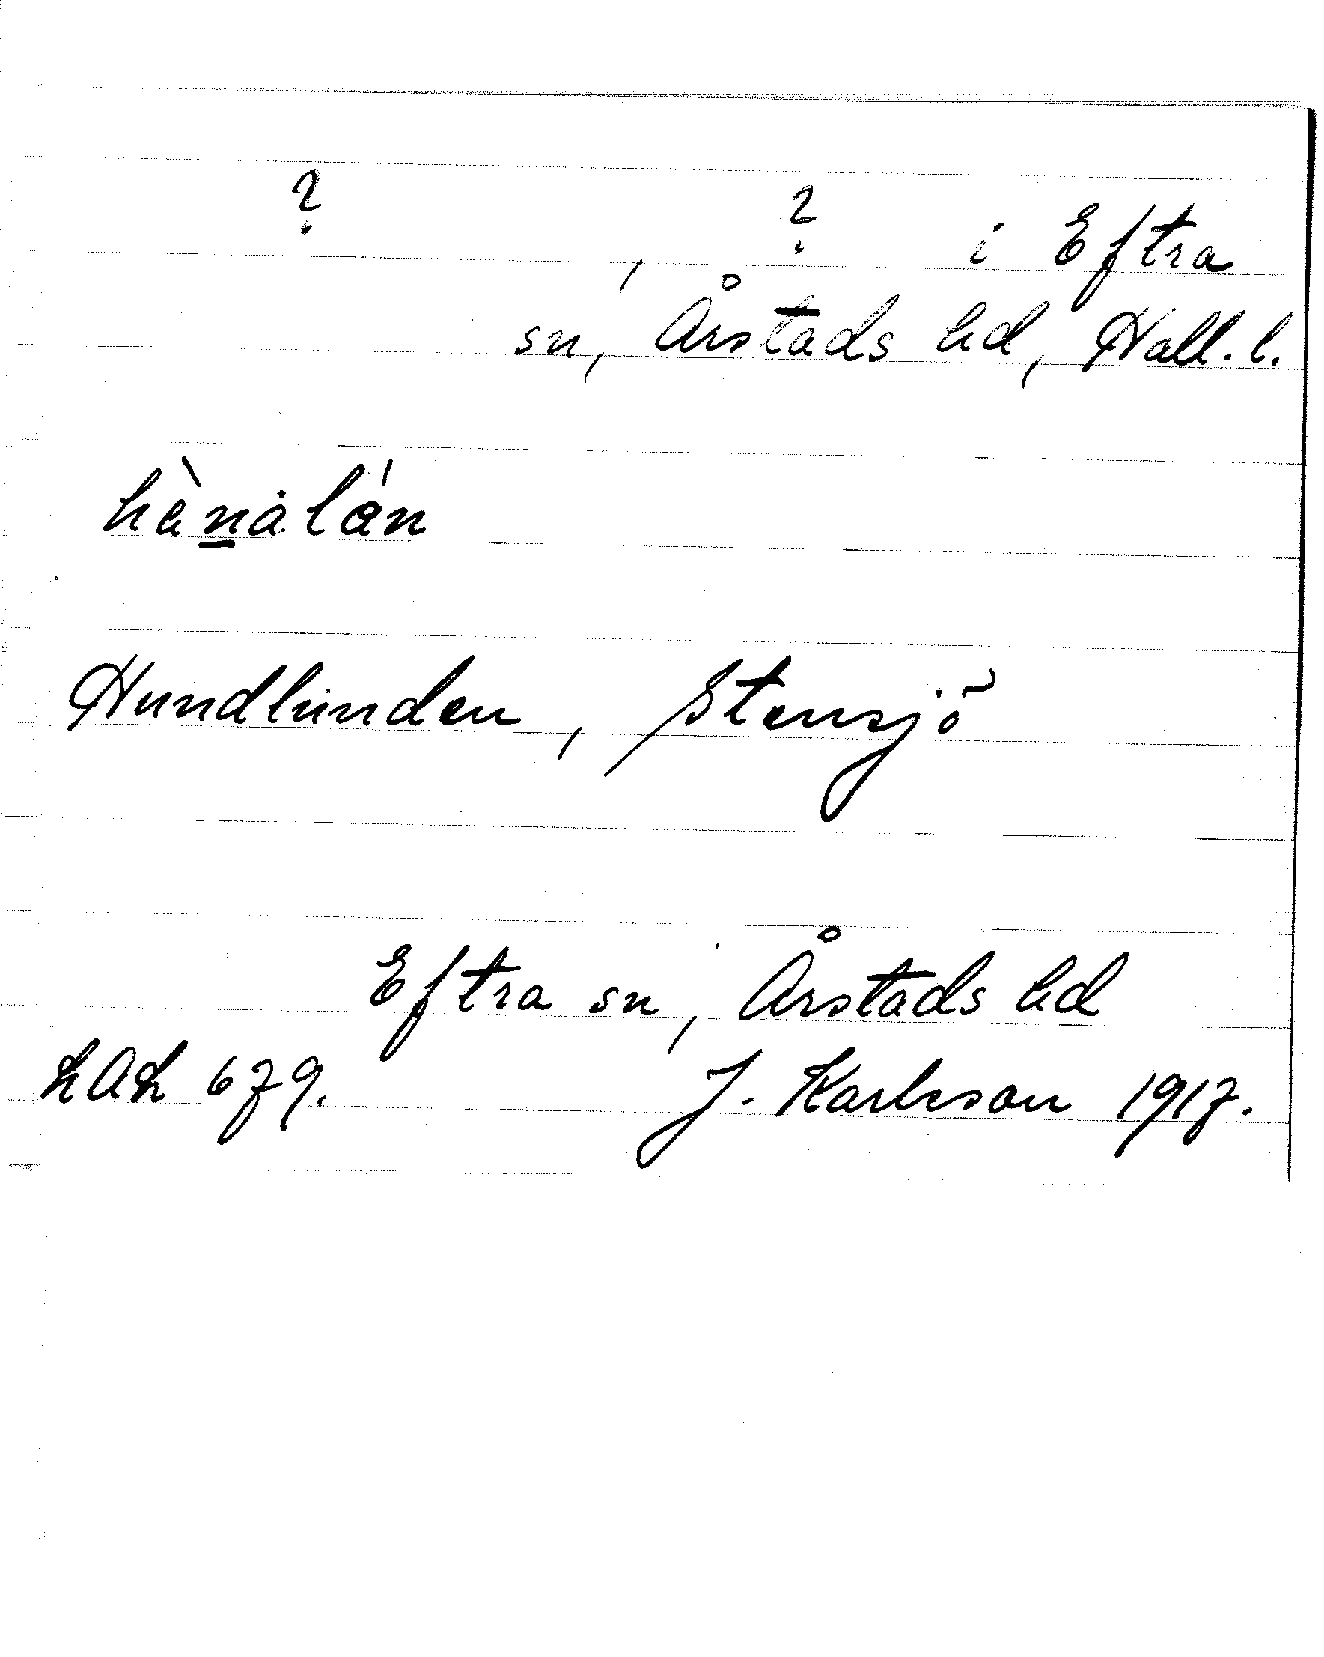 ? , ? i Eftra
sn, Årstads hd, Hall. l.
hàn̲ålán
Hundlunden, Stensjö
Eftra sn, Årstads hd
LAL 679. J. Karlsson 1917.